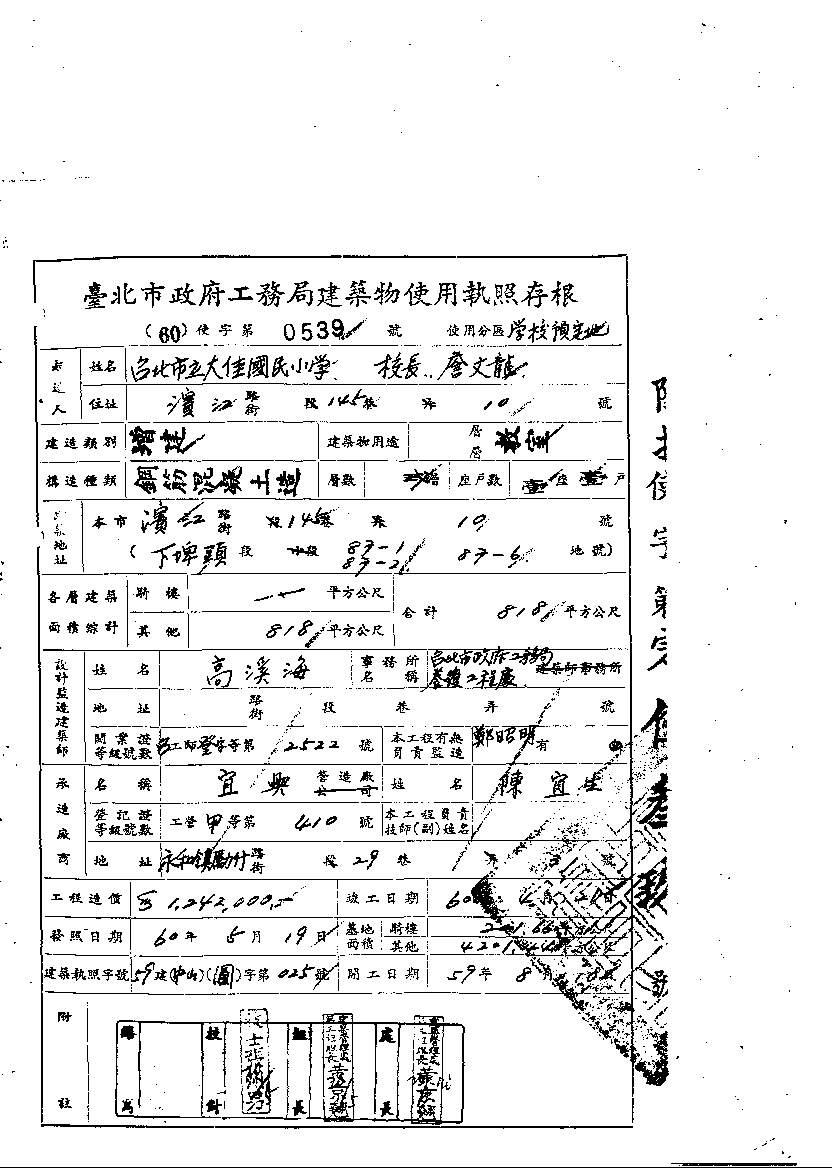 臺北市政府工務局建築物使用執照存根
(60)使字第 0539 號 使用分區 學校預定地
姓名 台北市立大佳國民小学 校長 詹文龍
住址 濱江 路街 段 145巷 弄 10 號
建造類別 增建 建築物用途 層層 教室
構造種類 鋼筋混凝土造 層數 座戶數 壹座壹戶
本市 濱江 路街 段 145巷 弄 10 號
地址 (下埤頭 段 小段 87-1 87-2 87-6 地號)
各層建築面積綜計 騎樓 — 平方公尺
其他 818 平方公尺 合計 818 平方公尺
設計監造建築師 姓名 高溪海 事務所名稱 台北市政府工務局養護工程處 建築師事務所
地址 路街 段 巷 弄 號
開業證等級號數 工師登字等第 2522 號 本工程有無負責監造 鄭昭明 有
承造廠商 名稱 宜興 營造廠公司 姓名 陳宜生
登記證等級號數 工營甲等第 410 號 本工程負責技師(副)姓名
地址 永和鎮勵行 路街 段 29 巷 號
工程造價 1,242,000 竣工日期 60 4月 21日
發照日期 60年 5月 19日 基地面積 騎樓
其他
建築執照字號 59建(中山)(圓)字第 025號 開工日期 59年 8月 18日
附註 繕寫 校對 組長 處長